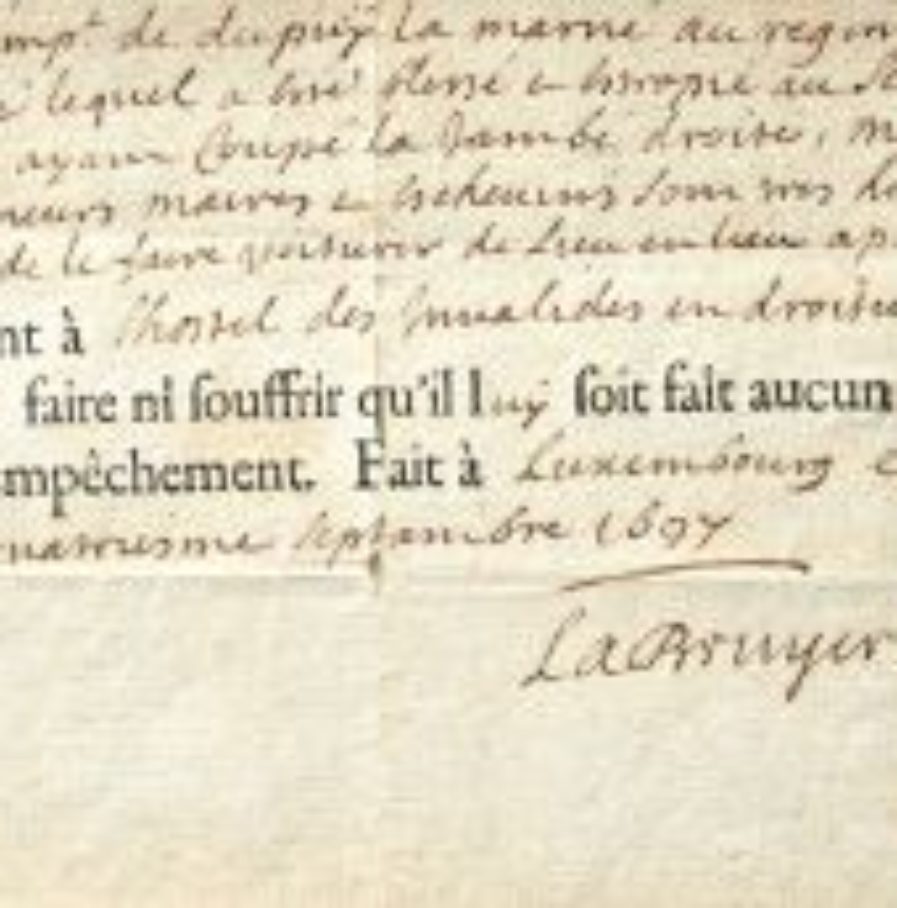 mpt. de dupuÿ la marne au regim
lequel a esté blessé e estropié au
ayant Coupé la Jambe droite,
neurs maires e Eschevins sont
de le faire voiturer de Lieu en lieu ap
nt à l'hostel des Invalides en droitu
faire ni ſouffrir qu'il luÿ ſoit fait aucun
mpêchement. Fait à Luxembourg
uatorziesme septambre 1697
La Bruyer